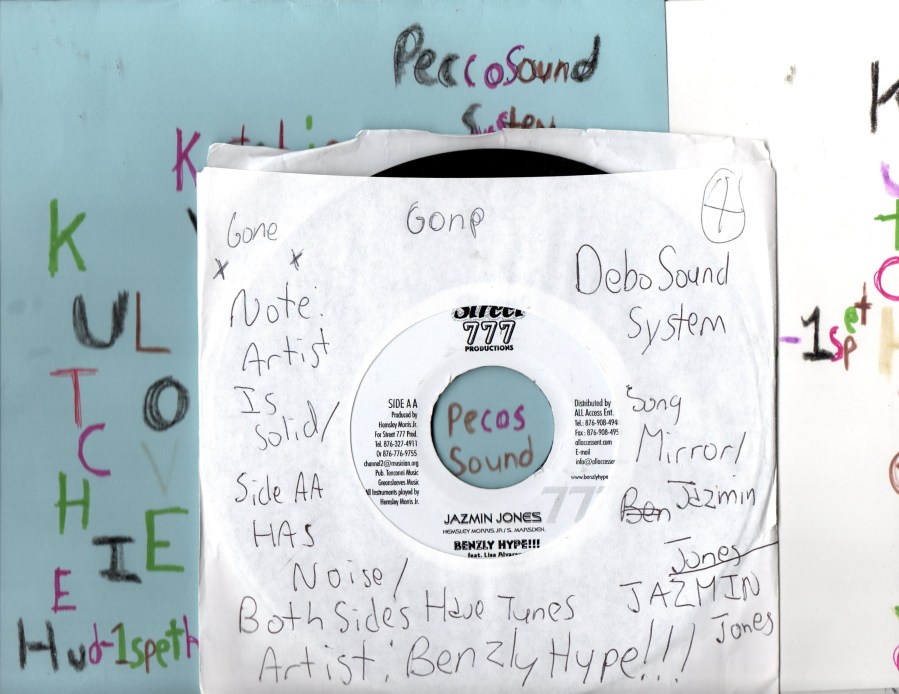 PeccoSound
System
K
KUL
TO
CV
HE
I
E
Hud-1speth
-1spet
Gone
Gonp
7
x x
Note:
Artist
Is
Solid/
Side AA
HAS
Noise/
Both Sides Have Tunes
Artist: Benzly Hype!!!/
Debo Sound
System
Song
Mirror/
Ben Jazmin
Jones
JAZMIN
Jones
Street
777
PRODUCTIONS
SIDE AA
Produced by
Hemsley Morris Jr.
For Street 777 Prod.
Tel. 876-327-4911
Or 876-776-9755
channel2@musician.org
Pub. Tenconni Music
Greensleeves Music
All Instruments played by
Hemsley Morris Jr.
Distributed by
ALL Access Ent.
Tel.: 876-908-494
Fax: 876-908-495
E-mail
www.benzlyhype
Pecos
Sound
777
JAZMIN JONES
HEMSLEY MORRIS JR./ S. MARSDEN
BENZLY HYPE!!!
feat. Lisa